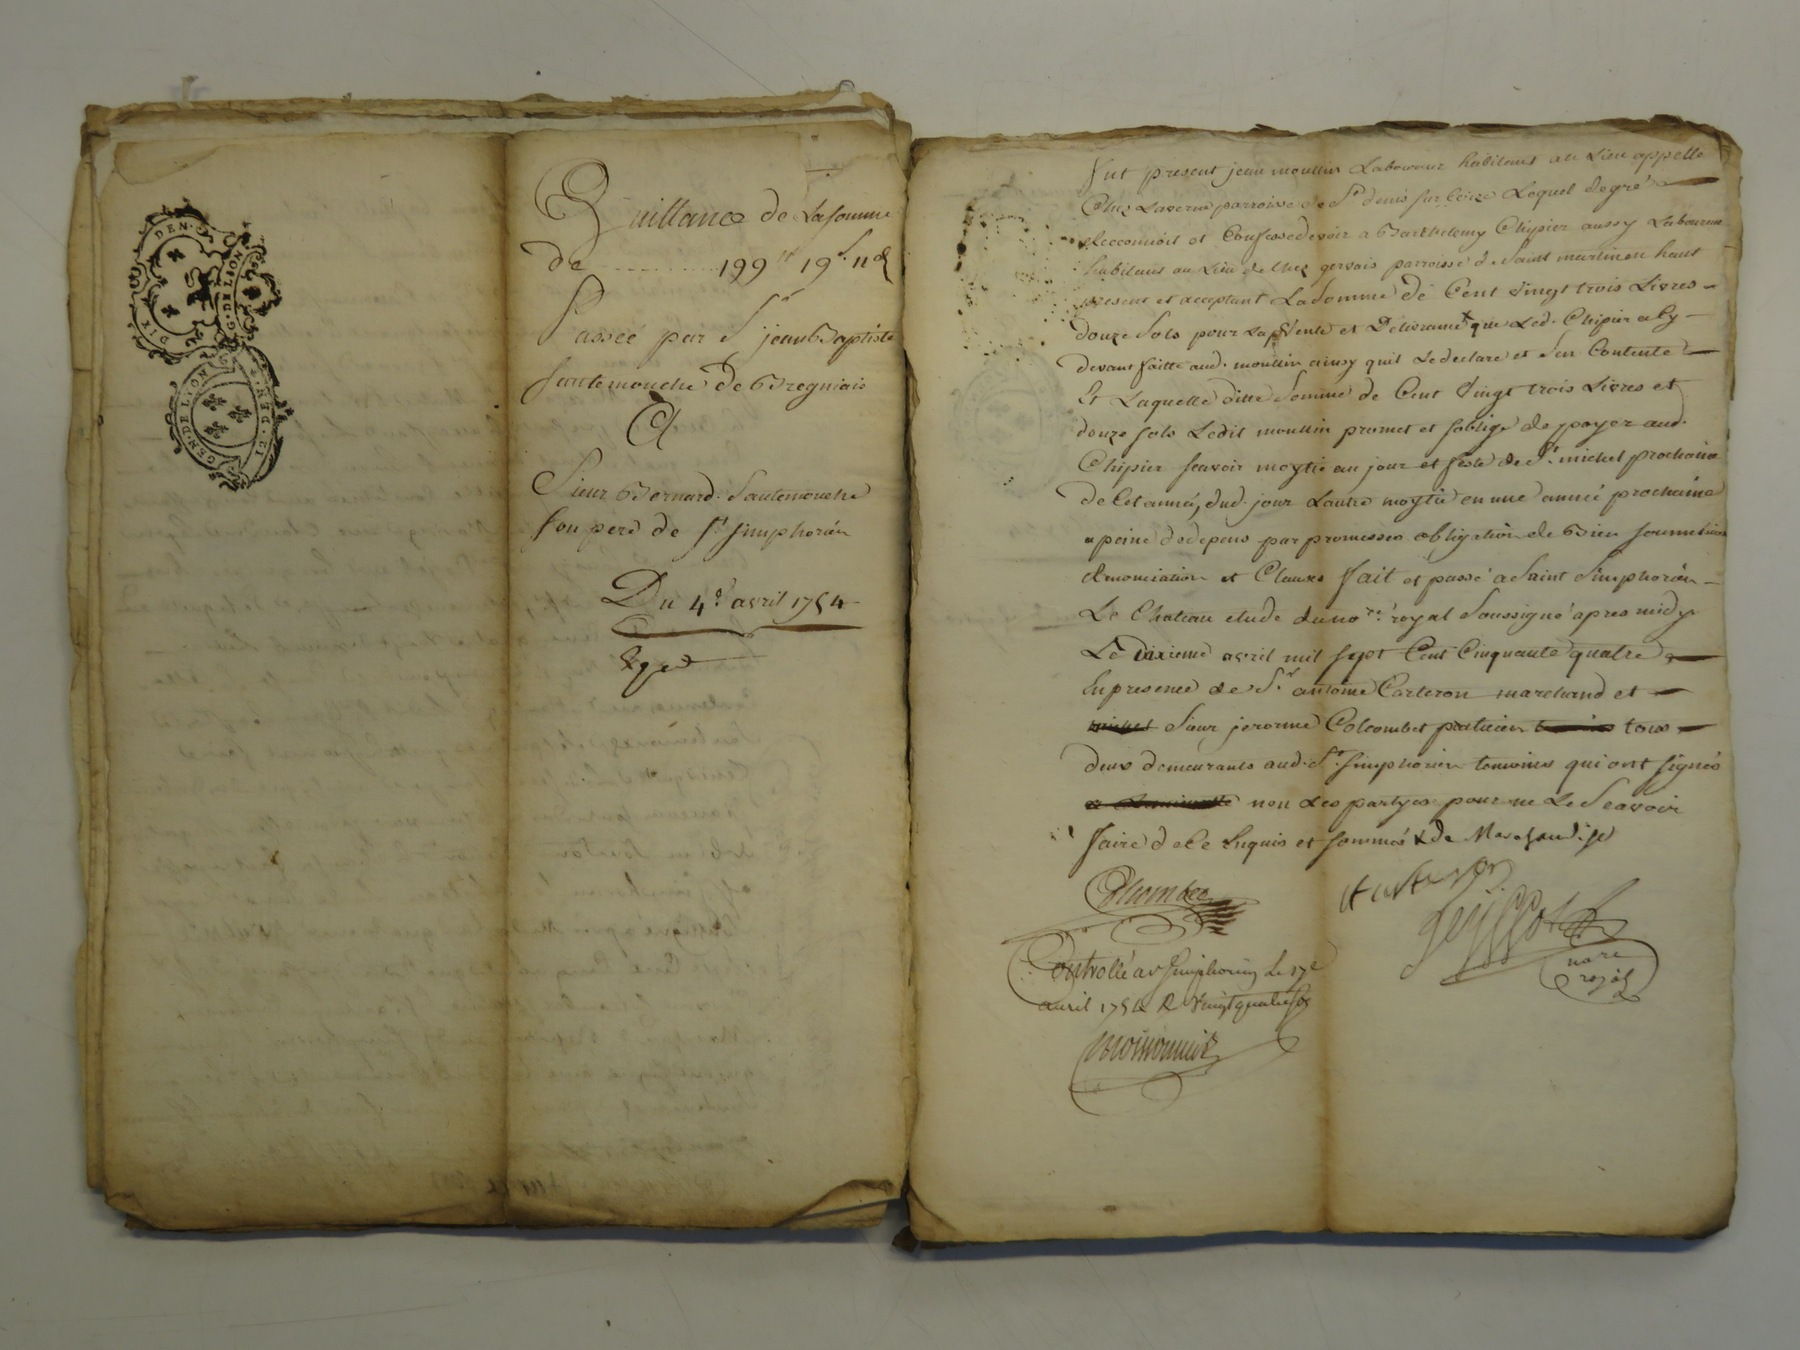 GEN. DE LION
DIX DEN.
G. DE LION
GEN. DE LION
Quittance de La somme
de 199ᵗᵗ 19ˢ 11ᵈ
Passeé par Sʳ jean Baptiste
sautemouche de Bregniais
A
Sieur Bernard Sautemouche
son pere de Sᵗ simphorien
Du 4ᵉ avril 1754
Fut present jean moullin Laboureur habitant au Lieu appellé
Chez Laverne parroisse de Sᵗ denis sur Coize Lequel degré
Reconnoit et Confesse devoir a Barthelemy Chipier aussy Laboureur
habitant au Lieu de Chez gervais parroisse de Saint martin en haut
present et acceptant La Somme de Cent Vingt trois Livres
douze Sols pour La Vente et Delivrance que Led. Chipier a Cy
devant faitte aud. moullin ainsy quil Le declare et S'en Contente
Et Laquelle ditte Somme de Cent Vingt trois Livres et
douze sols Ledit moullin promet et s'oblige de payer aud.
Chipier scavoir moytié au jour et feste de Sᵗ michel prochaine
de Cet année, dud. jour Lautre moytié en une année prochaine
a peine de depens par promesses obligation de Bien soumissions
Renonciation et Clauses fait et passé a Saint Simphorien
Le Chateau etude du noʳᵉ royal Soussigné apres midy
Le dixieme avril mil sept Cent Cinquante quatre
En presence de Sʳ antoine Carteron marchand et
Sieur jerorme Colcombet praticien tous
deux demeurants aud. Sᵗ simphorien temoins qui ont signés
non Les partyes pour ne Le Scavoir
faire de Ce Enquis et sommés x de Marchandise
Colcombet
Carteron
noʳᵉ
royal
Controllé a Sᵗ Simphorien Le 17ᵉ
avril 1754 R Vingt quatre sols